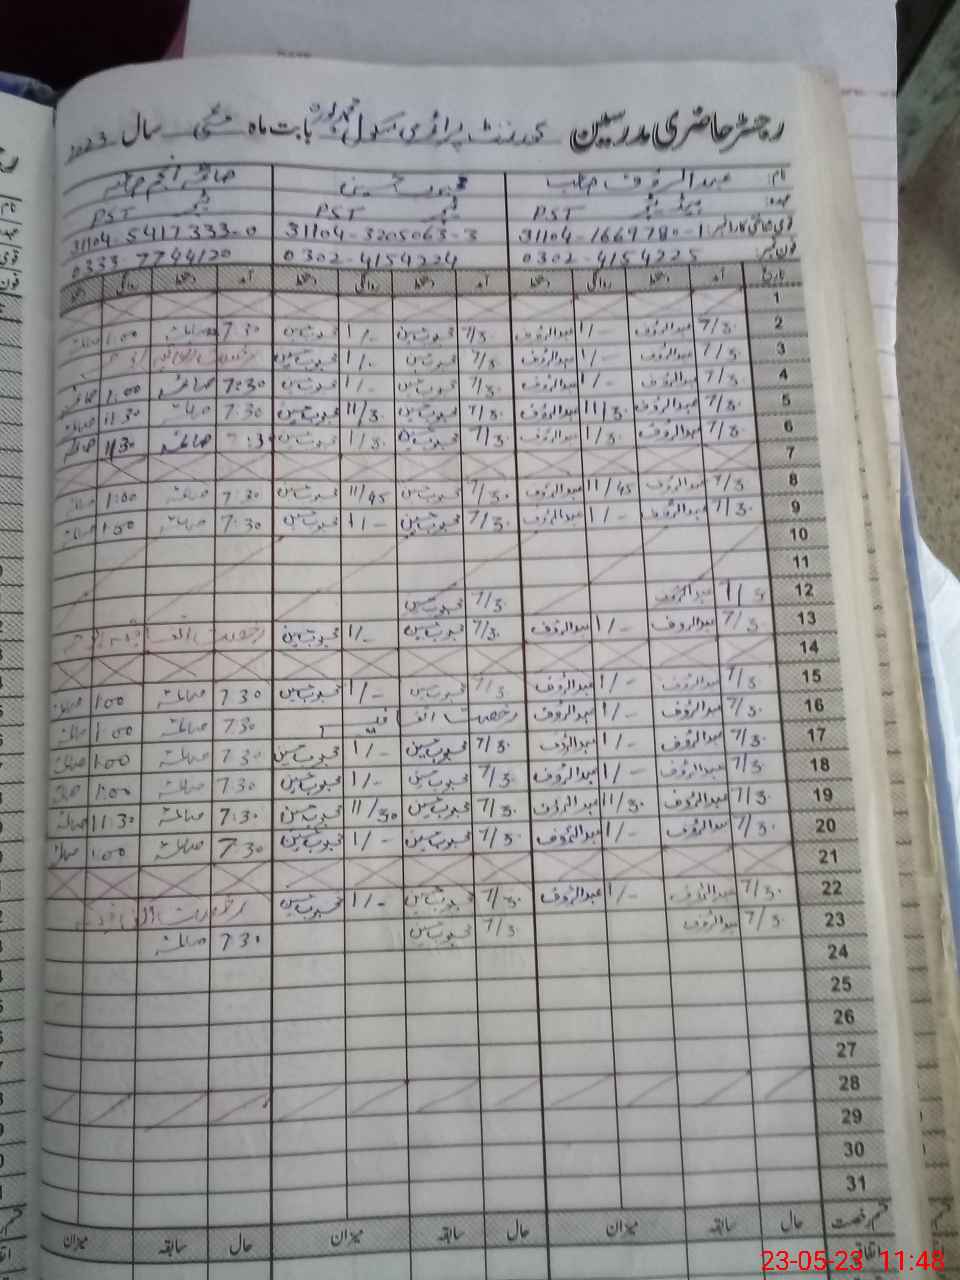 رجسٹر حاضری مدرسین گورنمنٹ پرائمری سکول بابت ماہ مئی سال 2023
نام: عبدالرؤف صاحب محبوب حسین صائمہ انجم صاحبہ
عہدہ: ہیڈ ٹیچر PST ٹیچر PST ٹیچر PST
قومی شناختی کارڈ نمبر: 31104-1669780-1 31104-3205063-3 31104-5417333-0
فون نمبر: 0302-4154225 0302-4154224 0333-7744120
تاریخ آمد دستخط روانگی دستخط آمد دستخط روانگی دستخط آمد دستخط روانگی دستخط
1
2 7/30 عبدالرؤف 1/- عبدالرؤف 7/30 محبوب حسین 1/- محبوب حسین 7:30 صائمہ 1:00 صائمہ
3 7/30 عبدالرؤف 1/- عبدالرؤف 7/30 محبوب حسین 1/- محبوب حسین
4 7/30 عبدالرؤف 1/- عبدالرؤف 7/30 محبوب حسین 1/- محبوب حسین 7:30 صائمہ 1:00 صائمہ
5 7/30 عبدالرؤف 11/30 عبدالرؤف 7/30 محبوب حسین 11/30 محبوب حسین 7:30 صائمہ 11:30 صائمہ
6 7/30 عبدالرؤف 1/30 عبدالرؤف 7/30 محبوب حسین 1/30 محبوب حسین 7:30 صائمہ 1:30 صائمہ
7
8 7/30 عبدالرؤف 11/45 عبدالرؤف 7/30 محبوب حسین 11/45 محبوب حسین 7:30 صائمہ 1:00 صائمہ
9 7/30 عبدالرؤف 1/- عبدالرؤف 7/30 محبوب حسین 1/- محبوب حسین 7:30 صائمہ 1:00 صائمہ
10
11
12 عبدالرؤف 7/30 محبوب حسین
13 7/30 عبدالرؤف 1/- عبدالرؤف 7/30 محبوب حسین 1/- محبوب حسین رخصت اتفاقیہ
14
15 7/30 عبدالرؤف 1/- عبدالرؤف 7/30 محبوب حسین 1/- محبوب حسین 7:30 صائمہ 1:00 صائمہ
16 7/30 عبدالرؤف 1/- عبدالرؤف رخصت اتفاقیہ 7:30 صائمہ 1:00 صائمہ
17 7/30 عبدالرؤف 1/- عبدالرؤف 7/30 محبوب حسین 1/- محبوب حسین 7:30 صائمہ 1:00 صائمہ
18 7/30 عبدالرؤف 1/- عبدالرؤف 7/30 محبوب حسین 1/- محبوب حسین 7:30 صائمہ 1:00 صائمہ
19 7/30 عبدالرؤف 11/30 عبدالرؤف 7/30 محبوب حسین 11/30 محبوب حسین 7:30 صائمہ 11:30 صائمہ
20 7/30 عبدالرؤف 1/- عبدالرؤف 7/30 محبوب حسین 1/- محبوب حسین 7:30 صائمہ 1:00 صائمہ
21
22 7/30 عبدالرؤف 1/- عبدالرؤف 7/30 محبوب حسین 1/- محبوب حسین
23 7/30 عبدالرؤف 7/30 محبوب حسین 7:30 صائمہ
24
25
26
27
28
29
30
31
قسم رخصت حال سابقہ میزان حال سابقہ میزان حال سابقہ میزان
اتفاقیہ
23-05-23 11:48